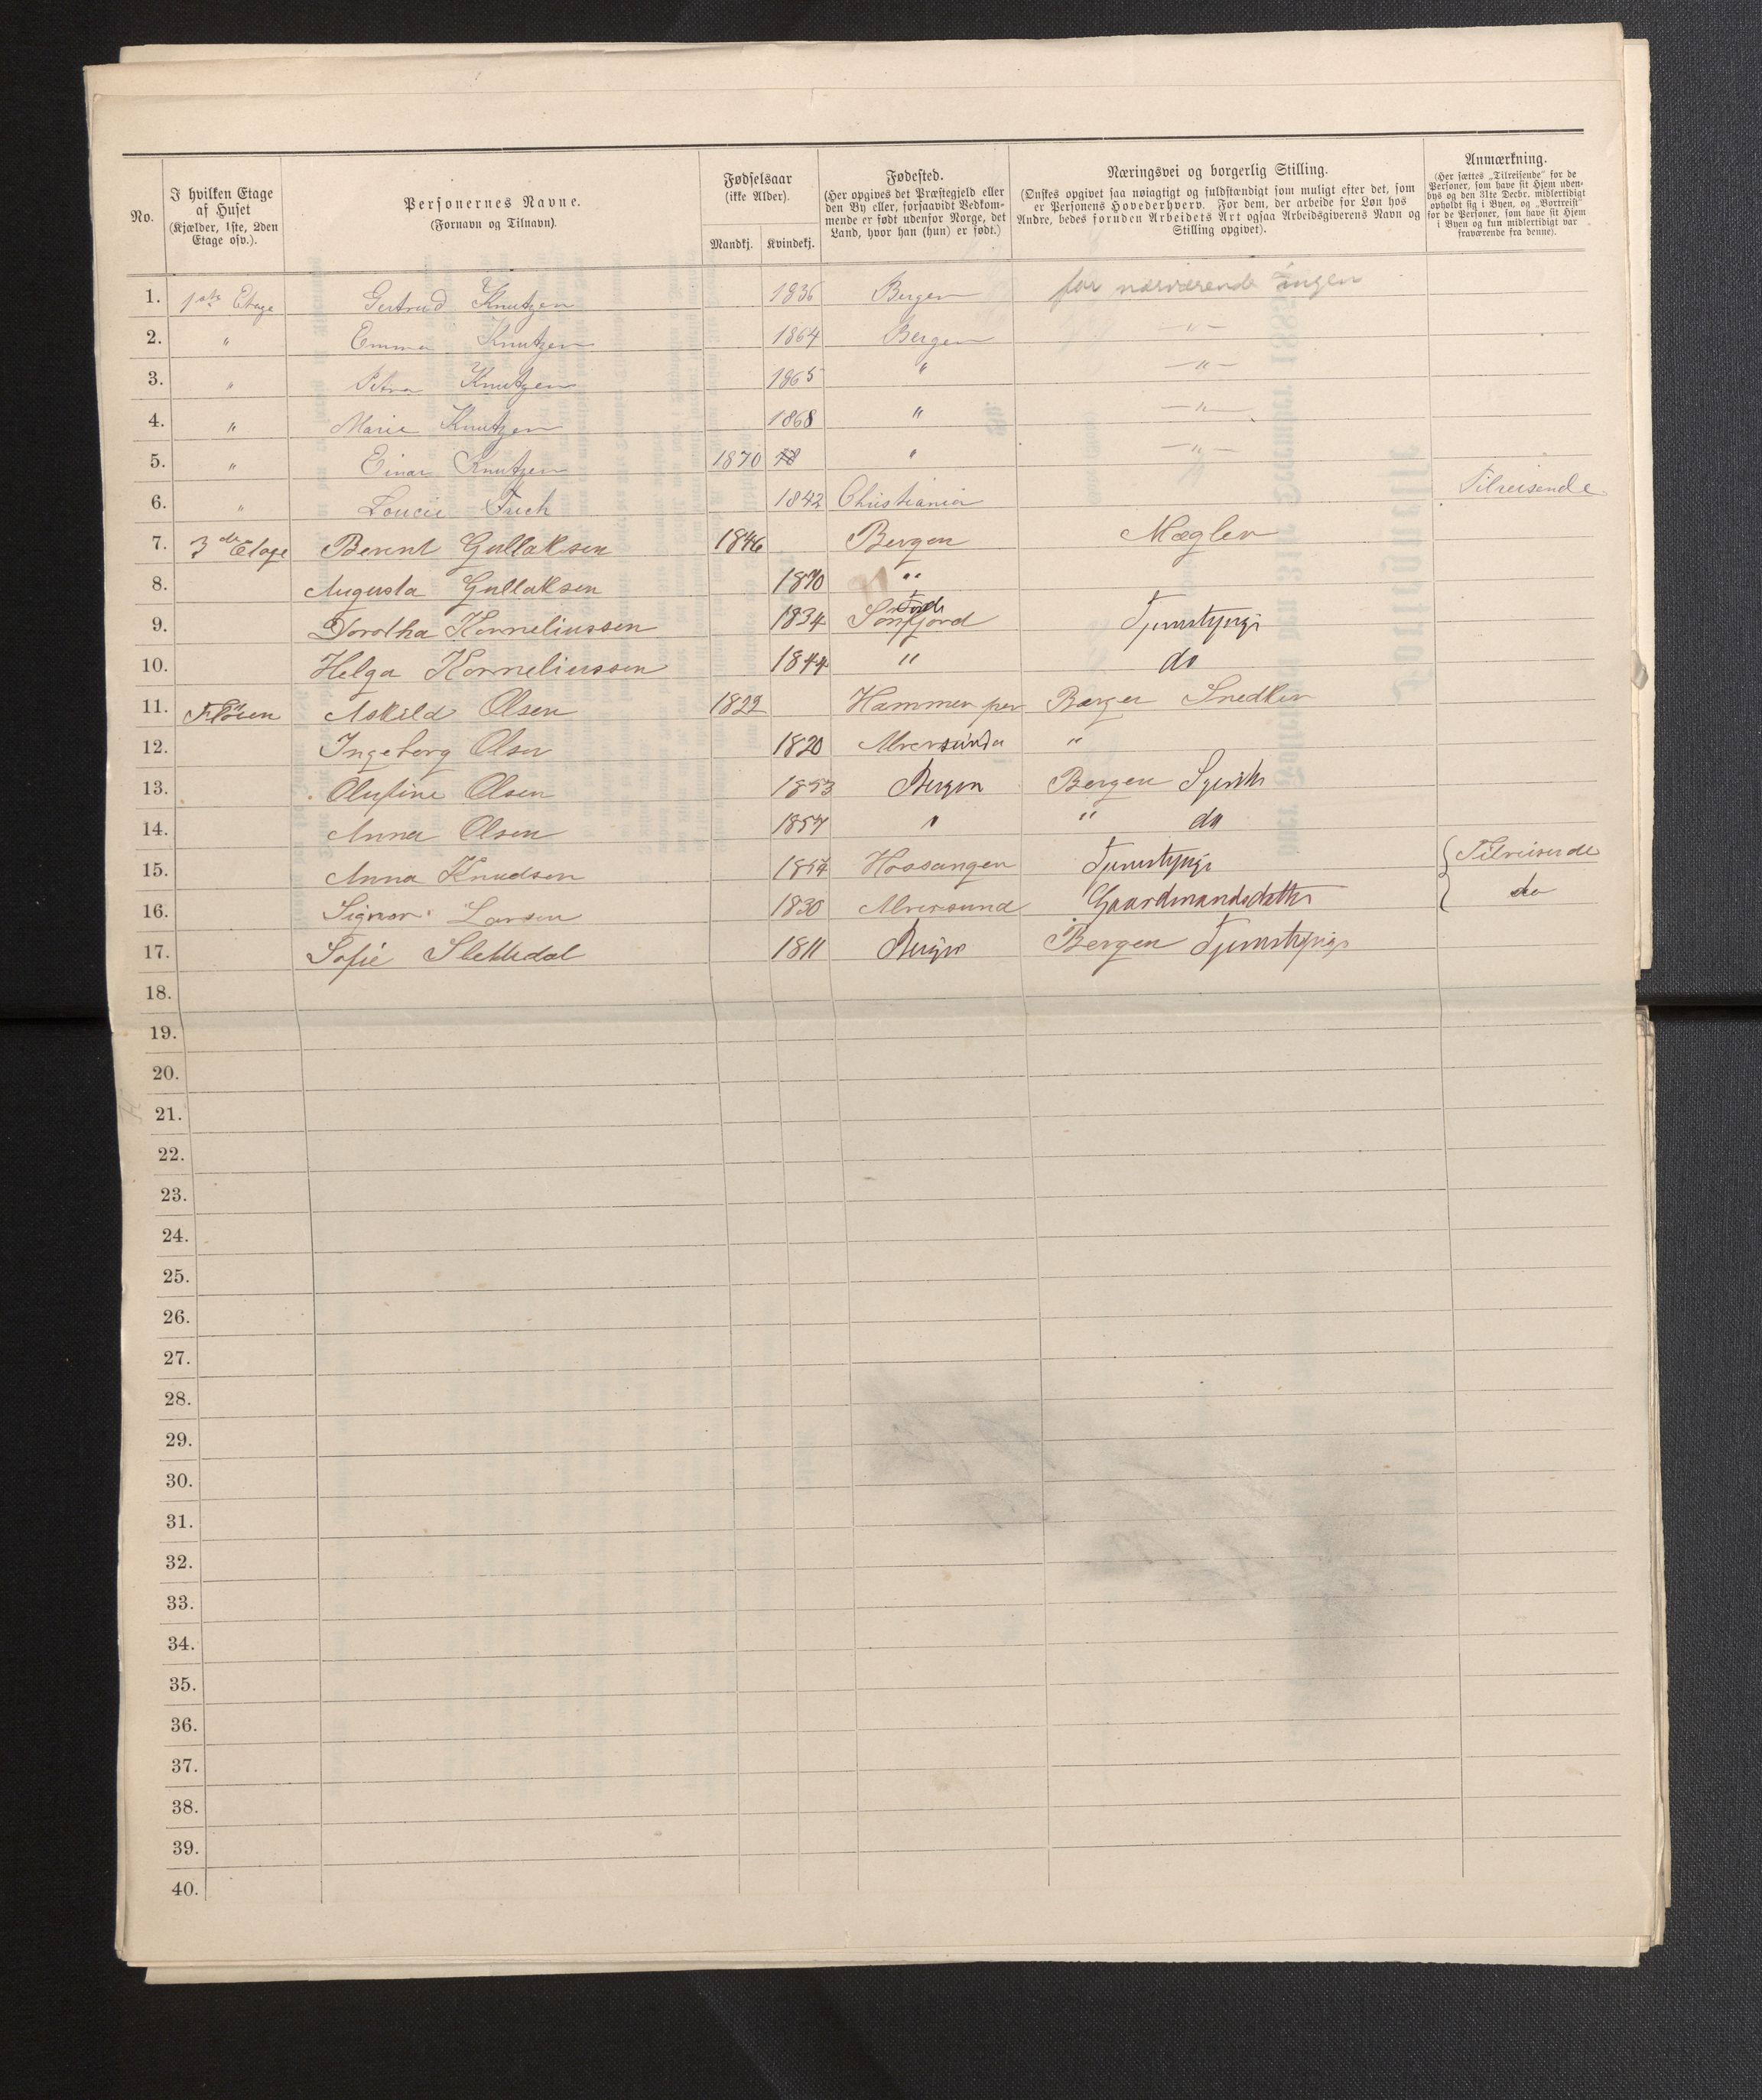 No.
I hvilken Etage af Huset
(Kjælder, 1ste, 2den Etage osv.).
Personernes Navne.
(Fornavn og Tilnavn).
Fødselsaar
(ikke Alder).
Mandkj. Kvindekj.
Fødested.
(Her opgives det Præstegjeld eller den By eller, forsaavidt Vedkommende er født udenfor Norge, det Land, hvor han (hun) er født.)
Næringsvei og borgerlig Stilling.
(Ønskes opgivet saa nøiagtigt og fuldstændigt som muligt efter det, som er Personens Hovederhverv. For dem, der arbeide for Løn hos Andre, bedes foruden Arbeidets Art ogsaa Arbeidsgiverens Navn og Stilling opgivet).
Anmærkning.
(Her sættes „Tilreisende" for de Personer, som have sit Hjem udenbys og den 31te Decbr. midlertidigt opholdt sig i Byen, og „Bortreist" for de Personer, som have sit Hjem i Byen og kun midlertidigt var fraværende fra denne).
1. 1ste Etage Gertrud Knutzen 1836 Bergen for nærværende ingen
2. " Emma Knutzen 1864 Bergen — " —
3. " Petra Knutzen 1865 " — " —
4. " Marie Knutzen 1868 " — " —
5. " Einar Knutzen 1870 " — " —
6. " Loucie Tuch 1842 Christiania Tilreisende
7. 3de Etage Berent Gullaksen 1846 Bergen Mægler
8. Augusta Gullaksen 1870 "
9. Dorotha Korneliussen 1834 Sønfjord Tjenestepige
10. Helga Korneliussen 1844 " do
11. Askild Olsen 1822 Hammer Bærger Snedker
12. Ingeborg Olsen 1820 Alversund "
13. Olufine Olsen 1853 Bergen Bergen Syerske
14. Anna Olsen 1857 " " do
15. Anna Knudsen 1857 Hosanger Tjenestepige Tilreisende
16. Larsen 1830 Alversund Gaardmandsdatter do
17. Sofie Slettedal 1811 Bergen Bergen Tjenestepige
18.
19.
20.
21.
22.
23.
24.
25.
26.
27.
28.
29.
30.
31.
32.
33.
34.
35.
36.
37.
38.
39.
40.